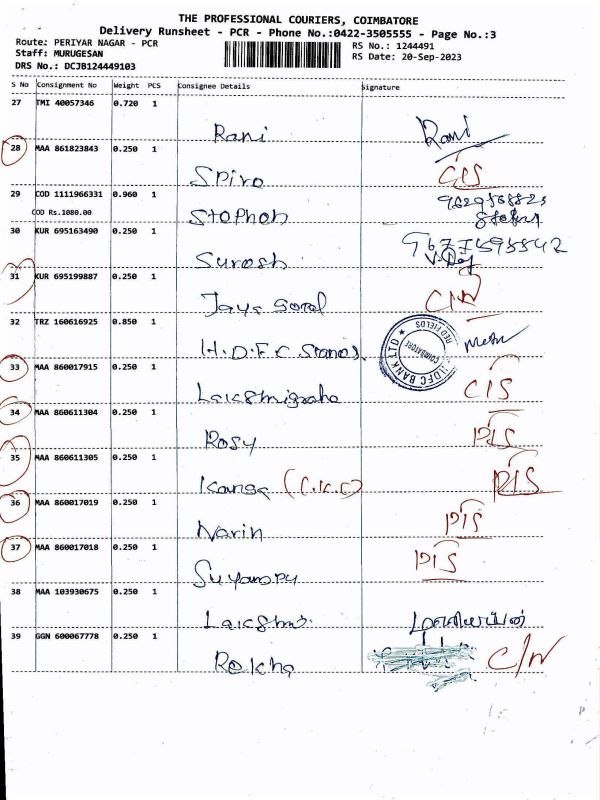 THE PROFESSIONAL COURIERS, COIMBATORE
Delivery Runsheet - PCR - Phone No.:0422-3505555 - Page No.:3
Route: PERIYAR NAGAR - PCR RS No.: 1244491
Staff: MURUGESAN RS Date: 20-Sep-2023
DRS No.: DCJB124449103
S No Consignment No Weight PCS Consignee Details Signature
27 TMI 40057346 0.720 1
Rani Rani
28 MAA 861823843 0.250 1
Spiro C/S
29 COD 1111966331 0.960 1
COD Rs.1080.00 Stophen
30 KUR 695163490 0.250 1
Surosh
31 KUR 695199887 0.250 1
Jaya C/N
32 TRZ 160616925 0.850 1
H.D.F.C. HDFC BANK LTD COIMBATORE RED FIELDS
33 MAA 860017915 0.250 1
Lakshmigraha C/S
34 MAA 860611304 0.250 1
Rosy D/S
35 MAA 860611305 0.250 1
Kanga D/S
36 MAA 860017019 0.250 1
Narin D/S
37 MAA 860017018 0.250 1
D/S
38 MAA 103930675 0.250 1
Lakshmi
39 GGN 600067778 0.250 1
Rekha C/N